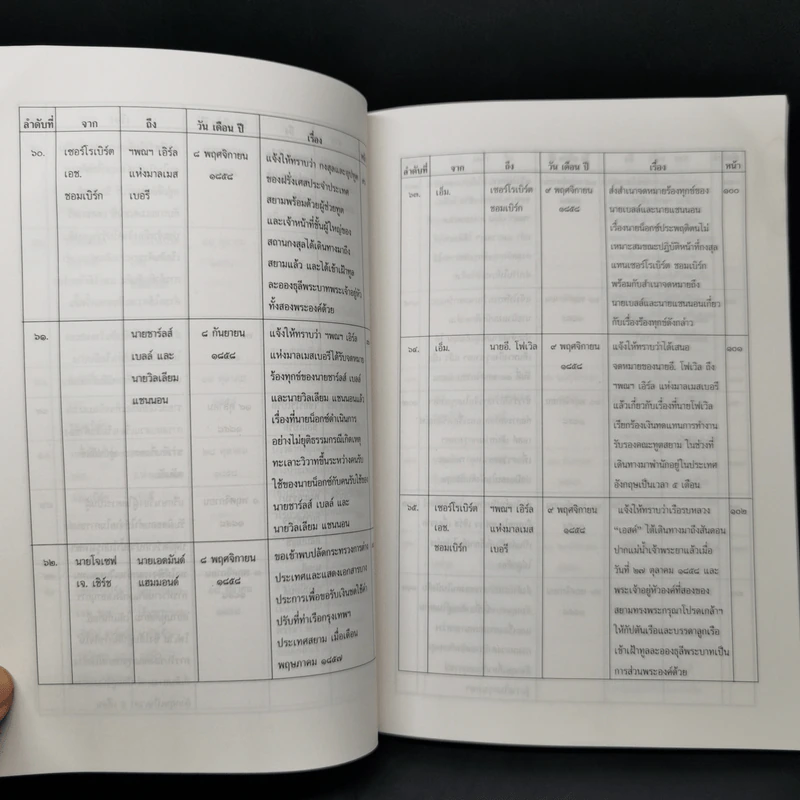 ลำดับที่ จาก ถึง วัน เดือน ปี เรื่อง
๖๐. เซอร์โรเบิร์ต ฯพณฯ เอิร์ล ๘ พฤศจิกายน แจ้งให้ทราบว่า กงสุลและอุปทูต
เอช. แห่งมาลเมส ๑๘๕๘ ของฝรั่งเศสประจำประเทศ
ชอมเบิร์ก เบอรี สยามพร้อมด้วยผู้ช่วยทูต
และเจ้าหน้าที่ชั้นผู้ใหญ่ของ
สถานกงสุลได้เดินทางมาถึง
สยามแล้ว และได้เข้าเฝ้าทูล
ละอองธุลีพระบาทพระเจ้าอยู่หัว
ทั้งสองพระองค์ด้วย
๖๑. นายชาร์ลส์ ๘ กันยายน แจ้งให้ทราบว่า ฯพณฯ เอิร์ล
เบลล์ และ ๑๘๕๘ แห่งมาลเมสเบอรีได้รับจดหมาย
นายวิลเลียม ร้องทุกข์ของนายชาร์ลส์ เบลล์
แชนนอน และนายวิลเลียม แชนนอนแล้ว
เรื่องที่นายน็อกซ์ดำเนินการ
อย่างไม่ยุติธรรมกรณีเกิดเหตุ
ทะเลาะวิวาทขึ้นระหว่างคนรับ
ใช้ของนายน็อกซ์กับคนรับใช้ของ
นายชาร์ลส์ เบลล์ และ
นายวิลเลียม แชนนอน
๖๒. นายโจเซฟ นายเอดมันด์ ๘ พฤศจิกายน ขอเข้าพบปลัดกระทรวงการต่าง
เจ. เชิร์ช แฮมมอนด์ ๑๘๕๘ ประเทศและแสดงเอกสารบาง
ประการเพื่อขอรับเงินชดใช้ค่า
ปรับที่ท่าเรือกรุงเทพฯ
ประเทศสยาม เมื่อเดือน
พฤษภาคม ๑๘๕๗
ลำดับที่ จาก ถึง วัน เดือน ปี เรื่อง หน้า
๖๓. เอ็ม. เซอร์โรเบิร์ต ๙ พฤศจิกายน ส่งสำเนาจดหมายร้องทุกข์ของ ๑๐๐
ชอมเบิร์ก ๑๘๕๘ นายเบลล์และนายแชนนอน
เรื่องนายน็อกซ์ประพฤติตนไม่
เหมาะสมขณะปฏิบัติหน้าที่กงสุล
แทนเซอร์โรเบิร์ต ชอมเบิร์ก
พร้อมกับสำเนาจดหมายถึง
นายเบลล์และนายแชนนอนเกี่ยว
กับเรื่องร้องทุกข์ดังกล่าว
๖๔. เอ็ม. นายอี. โฟเวิล ๙ พฤศจิกายน แจ้งให้ทราบว่าได้เสนอ ๑๐๑
๑๘๕๘ จดหมายของนายอี. โฟเวิล ถึง
ฯพณฯ เอิร์ล แห่งมาลเมสเบอรี
แล้วเกี่ยวกับเรื่องที่นายโฟเวิล
เรียกร้องเงินทดแทนการทำงาน
รับรองคณะทูตสยาม ในช่วงที่
เดินทางมาพำนักอยู่ในประเทศ
อังกฤษเป็นเวลา ๕ เดือน
๖๕. เซอร์โรเบิร์ต ฯพณฯ เอิร์ล ๙ พฤศจิกายน แจ้งให้ทราบว่าเรือรบหลวง ๑๐๒
เอช. แห่งมาลเมส ๑๘๕๘ “เอสค์” ได้เดินทางมาถึงสันดอน
ชอมเบิร์ก เบอรี ปากแม่น้ำเจ้าพระยาแล้วเมื่อ
วันที่ ๒๗ ตุลาคม ๑๘๕๘ และ
พระเจ้าอยู่หัวองค์ที่สองของ
สยามทรงพระกรุณาโปรดเกล้าฯ
ให้กัปตันเรือและบรรดาลูกเรือ
เข้าเฝ้าทูลละอองธุลีพระบาทเป็น
การส่วนพระองค์ด้วย